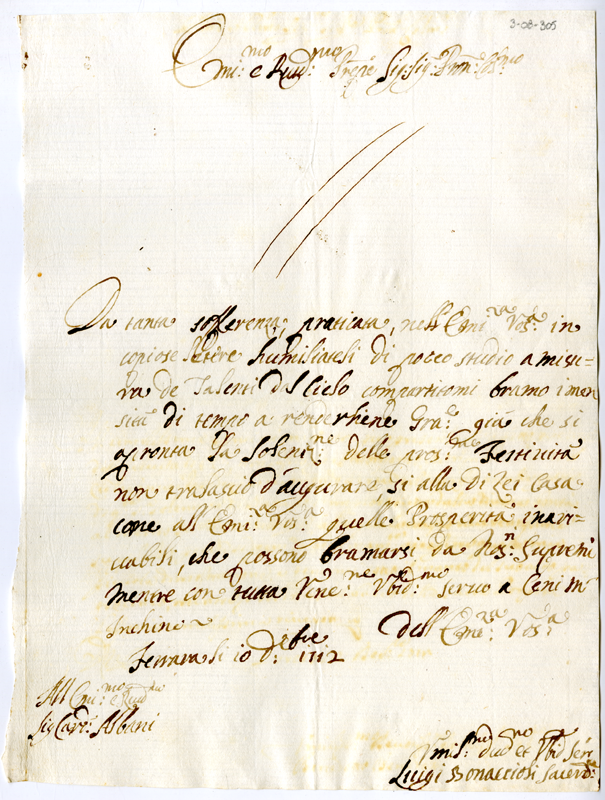 3-08-305
Emi:mo e Rued:mo Prcpe Sig: Sig: Pron: Col:mo
Da tanta sofferenza, praticata, nell Emi:za Vos:a in
copiose letere humiliateli di pocco studio a misu-
ra de Talenti dal Cielo compartitomi bramo imen
sità di tempo a renderliene Gra:e già che si
apronta la Soleni:ne delle pros:me Festività
non trasascio d'augurare, si alla Di Lei Casa
come all Emi:za Vos:a quelle Prosperità inari-
ccabili, che possono bramarsi da Nos:n Supremi
mentre con tutta Vene:ne Vbid:mo servo a Ceni m
Inchino
Dell Emi:za Vos:a
Ferrara li 10 d:bre 1712
All Emi:mo e Rued:mo
Sig Car: Albani
Vmil:mo Diud:mo et Vbid: Ser:
Luigi Bonaccioli Sacerd: